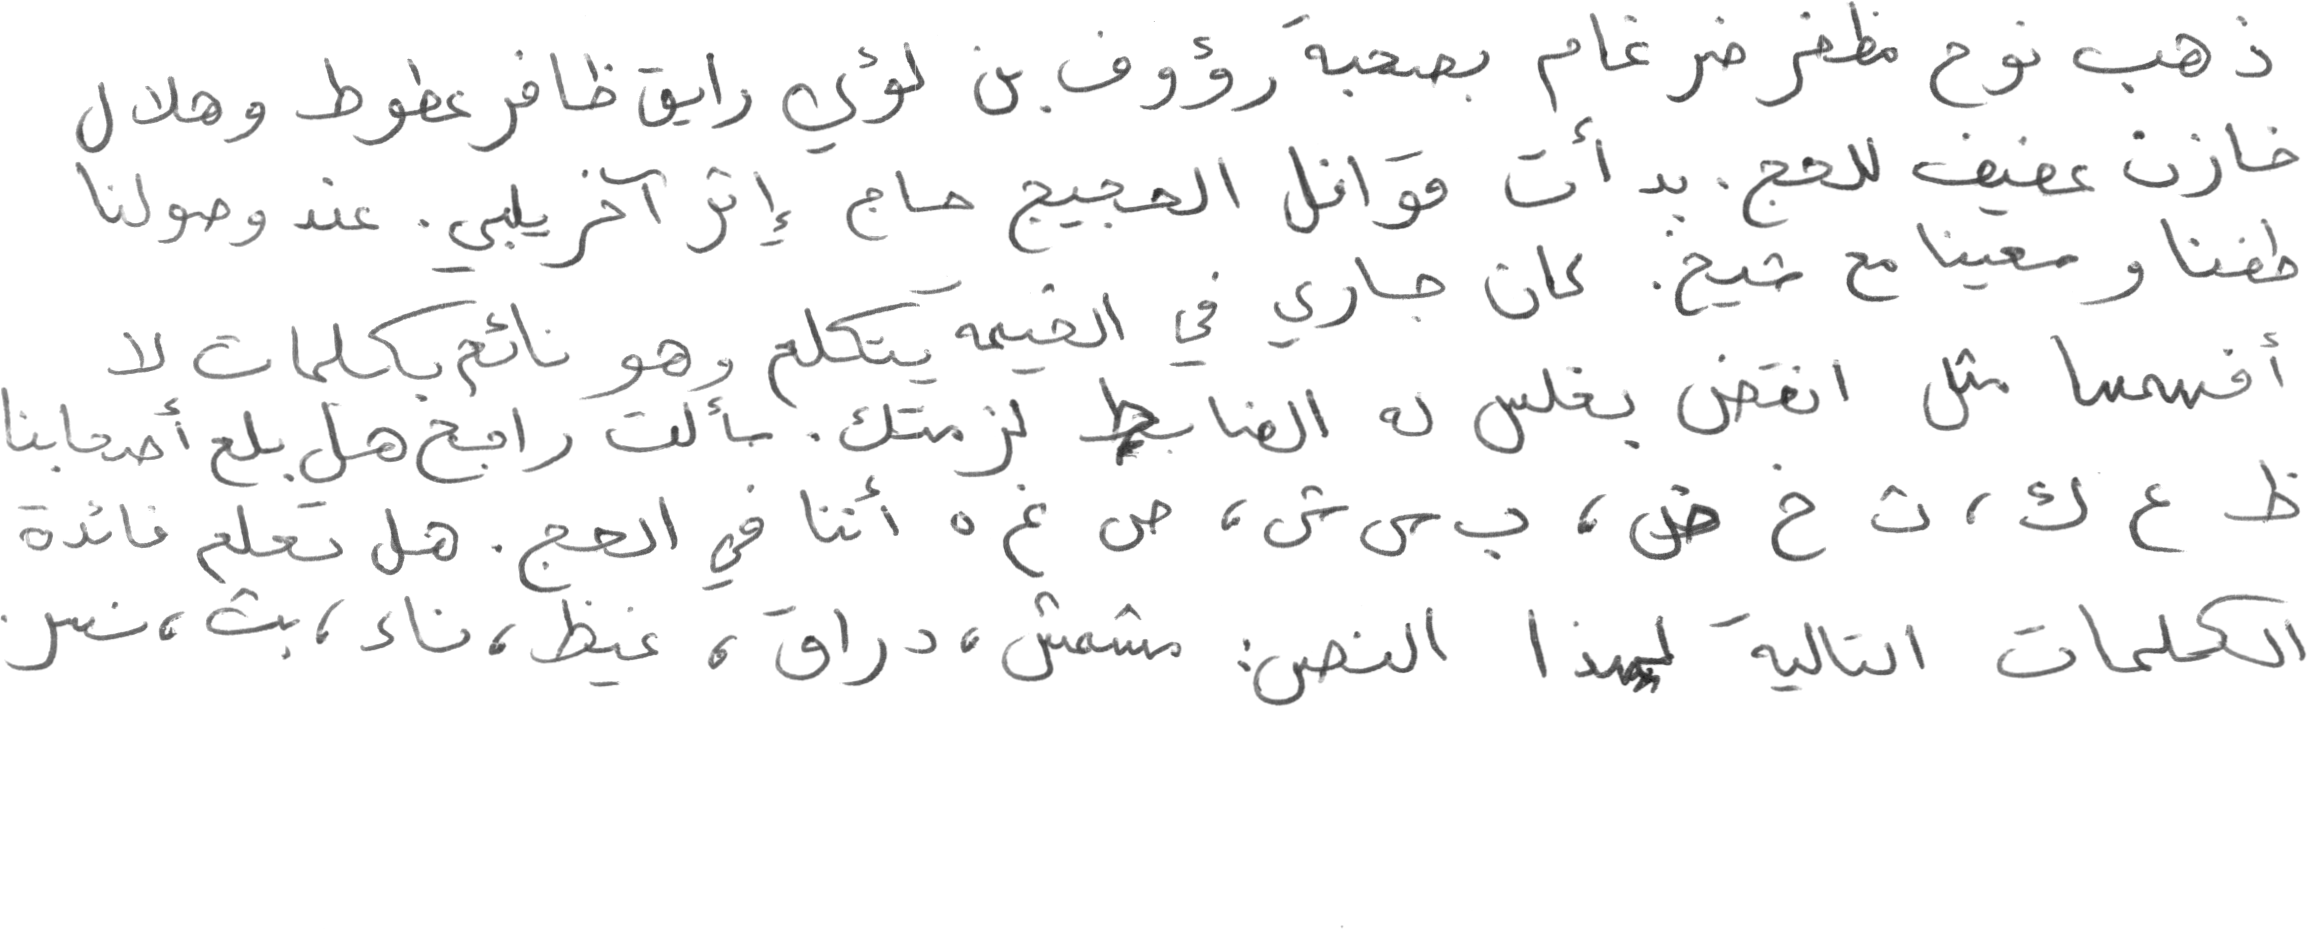 ذهب نوح مظفر ضرغام بصحبة رؤوف بن لؤي رايق ظافر عطوط وهلال
خازن عفيف للحج. بدأت قوافل الحجيج حاج إثر آخر يلبي. عند وصولنا
طفنا وسعينا مع شيخ. كان جاري في الخيمة يتكلم وهو نائم بكلمات لا
أفهمها مثل انقض بغلس له الضابط لزمتك. سألت رابح هل بلغ أصحابنا
ظ ع ك، ث خ ض، ب س ش، ص غ ه أننا في الحج. هل تعلم فائدة
الكلمات التالية لهذا النص: مشمش، دراق، غيظ، ناء، بث، نسر.